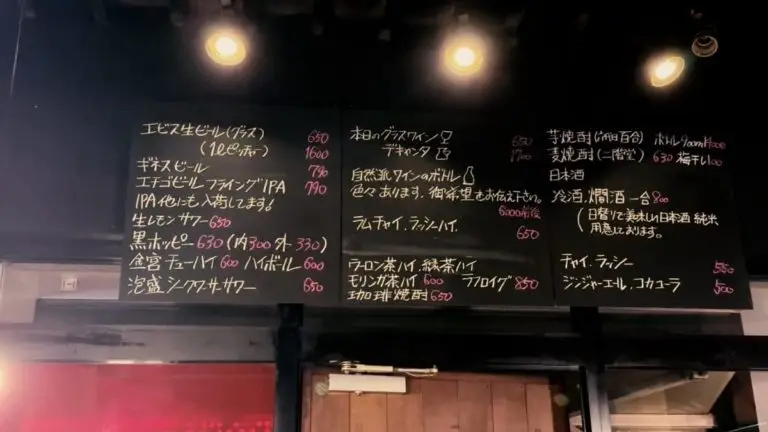 エビス生ビール(グラス) 650
(1ℓピッチャー) 1600
ギネスビール 790
エチゴビール フライングIPA 790
IPA 他にも入荷してます!
生レモンサワー 650
黒ホッピー 630 (内300 外330)
金宮チューハイ 600 ハイボール 600
泡盛シークワーサーサワー 650
本日のグラスワイン 650
デキャンタ
自然派ワインのボトル
色々あります。御希望をお伝え下さい。
6000前後
ラムチャイ、ラッシーハイ 650
ウーロン茶ハイ、緑茶ハイ
モリンガ茶ハイ 600 ラフロイグ 850
珈琲焼酎 650
芋焼酎 ボトル900ml
麦焼酎(二階堂) 630 梅干し100
日本酒
冷酒、燗酒 一合 800
(日替りで美味しい日本酒
用意しております。
チャイ、ラッシー 550
ジンジャーエール、コカコーラ 500